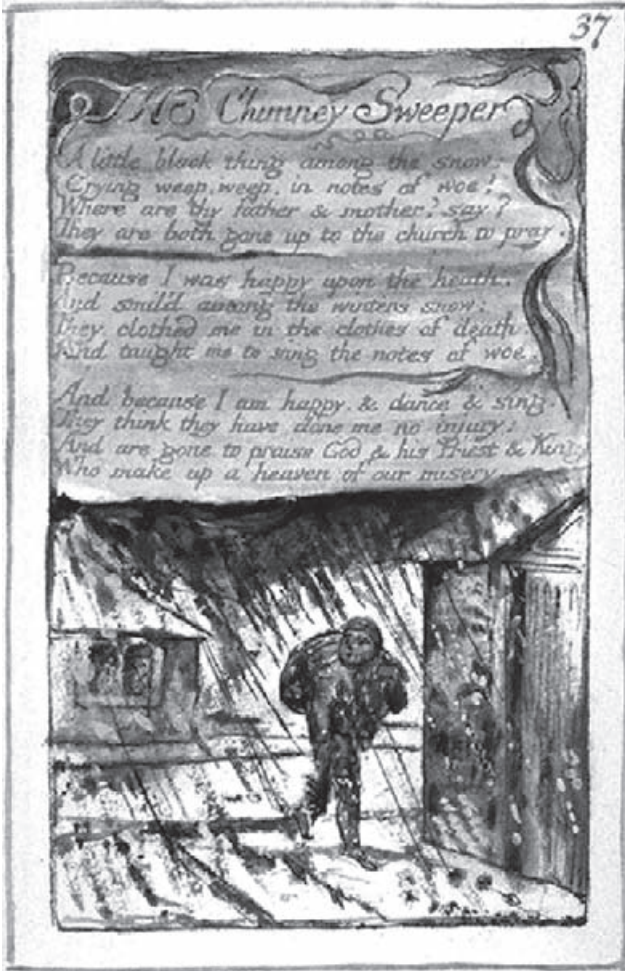 37
THE Chimney Sweeper
A little black thing among the snow:
Crying weep, weep, in notes of woe!
Where are thy father & mother? say?
They are both gone up to the church to pray.
Because I was happy upon the heath,
And smil'd among the winters snow:
They clothed me in the clothes of death
And taught me to sing the notes of woe.
And because I am happy, & dance & sing,
They think they have done me no injury:
And are gone to praise God & his Priest & King
Who make up a heaven of our misery